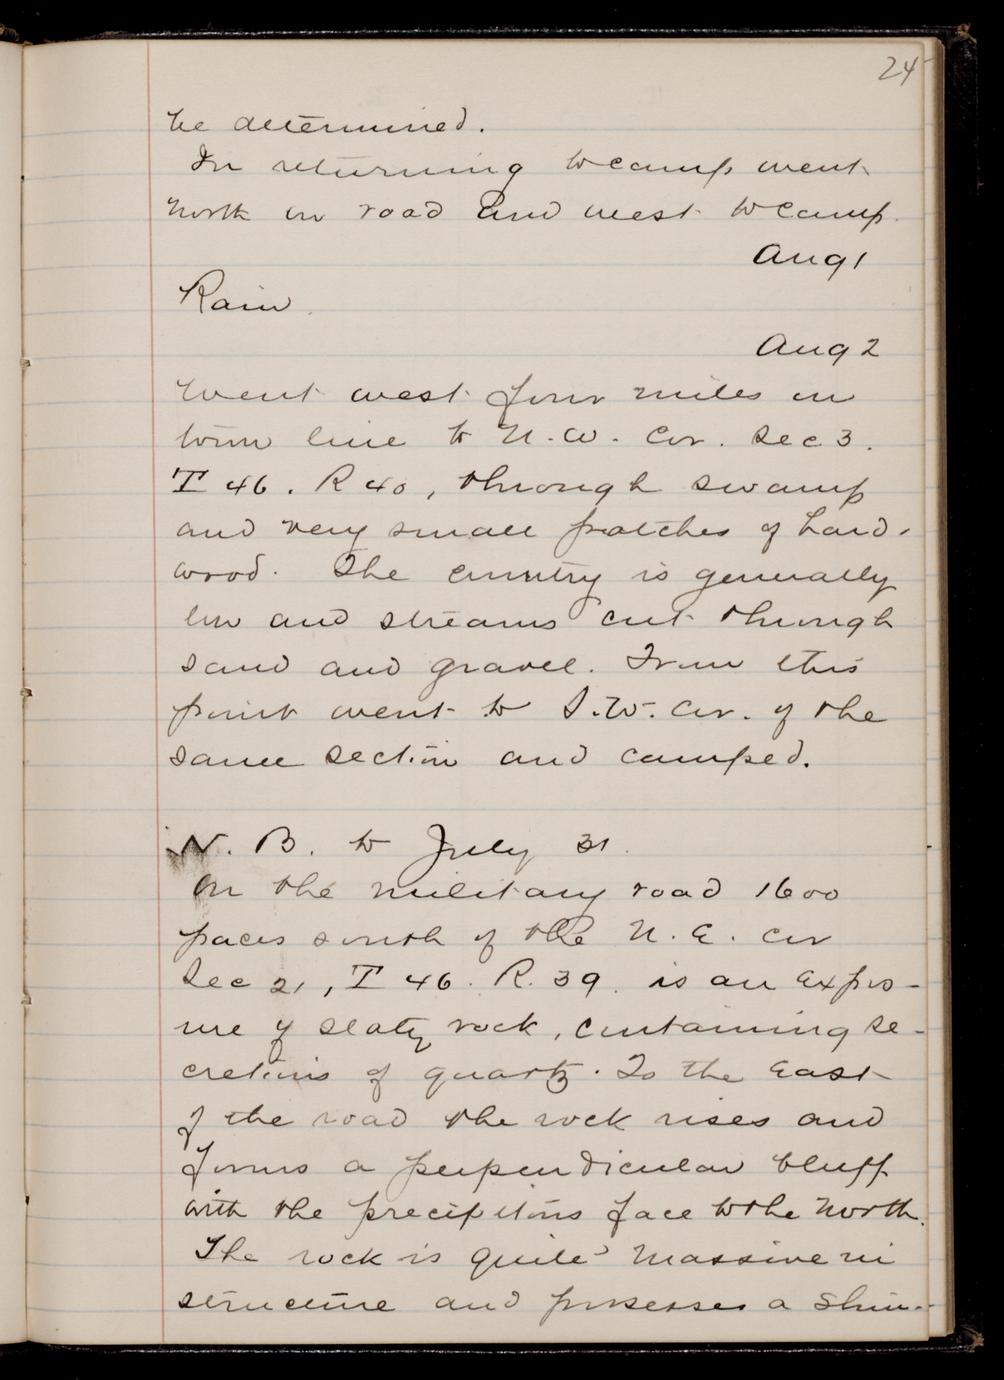 24
be determined.
In returning to camp went
north on road and west to camp.
Aug 1
Rain.
Aug 2
Went west four miles on
town line to N.W. Cor. Sec 3.
T 46. R 40, through swamp
and very small patches of hard-
wood. The country is generally
low and streams cut through
sand and gravel. From this
point went to S.W. Cor. of the
same section and camped.
N. B. to July 31.
On the military road 1600
paces south of the N. E. Cor
Sec 21, T 46. R. 39. is an expos-
ure of slaty rock, containing se-
cretions of quartz. To the East
of the road the rock rises and
forms a perpendicular bluff
with the precipitous face to the North.
The rock is quite massive in
structure and possesses a shin-